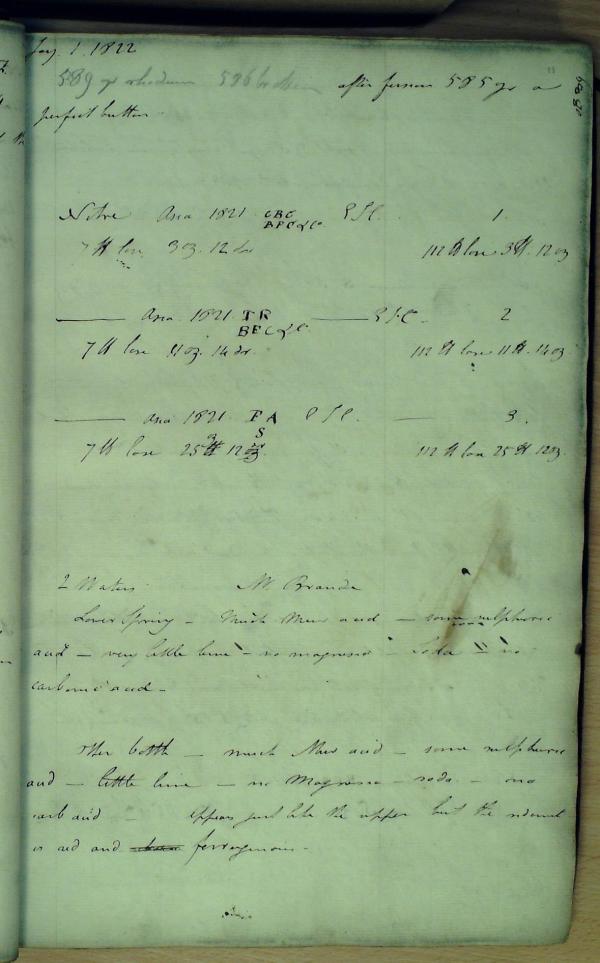 Jany. 1. 1822
589 gr rhodium 586 after fusion 585 gr a
perfect button
Nitre Asia 1821 CBC EIC. 1.
BFC&Co
7 lb lose 3 oz. 12 dr 112 lb lose 3 lb. 12 oz
Asia 1821. TR EIC 2
BFC&C.
7 lb lose 11 oz. 14 dr. 112 lb lose 11 lb. 14 oz
Asia 1821 FA EIC. 3.
S
7 lb lose 25 12 112 lb lose 25 lb 12 oz.
2 Waters Mr. Brande
Lower Spring - Much Mur acid - some sulphuric
acid - very little lime - no magnesia - soda - no
carbonic acid -
Other bottle - much Mur acid - some sulphuric
acid - little lime - no Magnesia - soda - no
carb acid - Appears just like the upper but the sediment
is red and ferruginous -